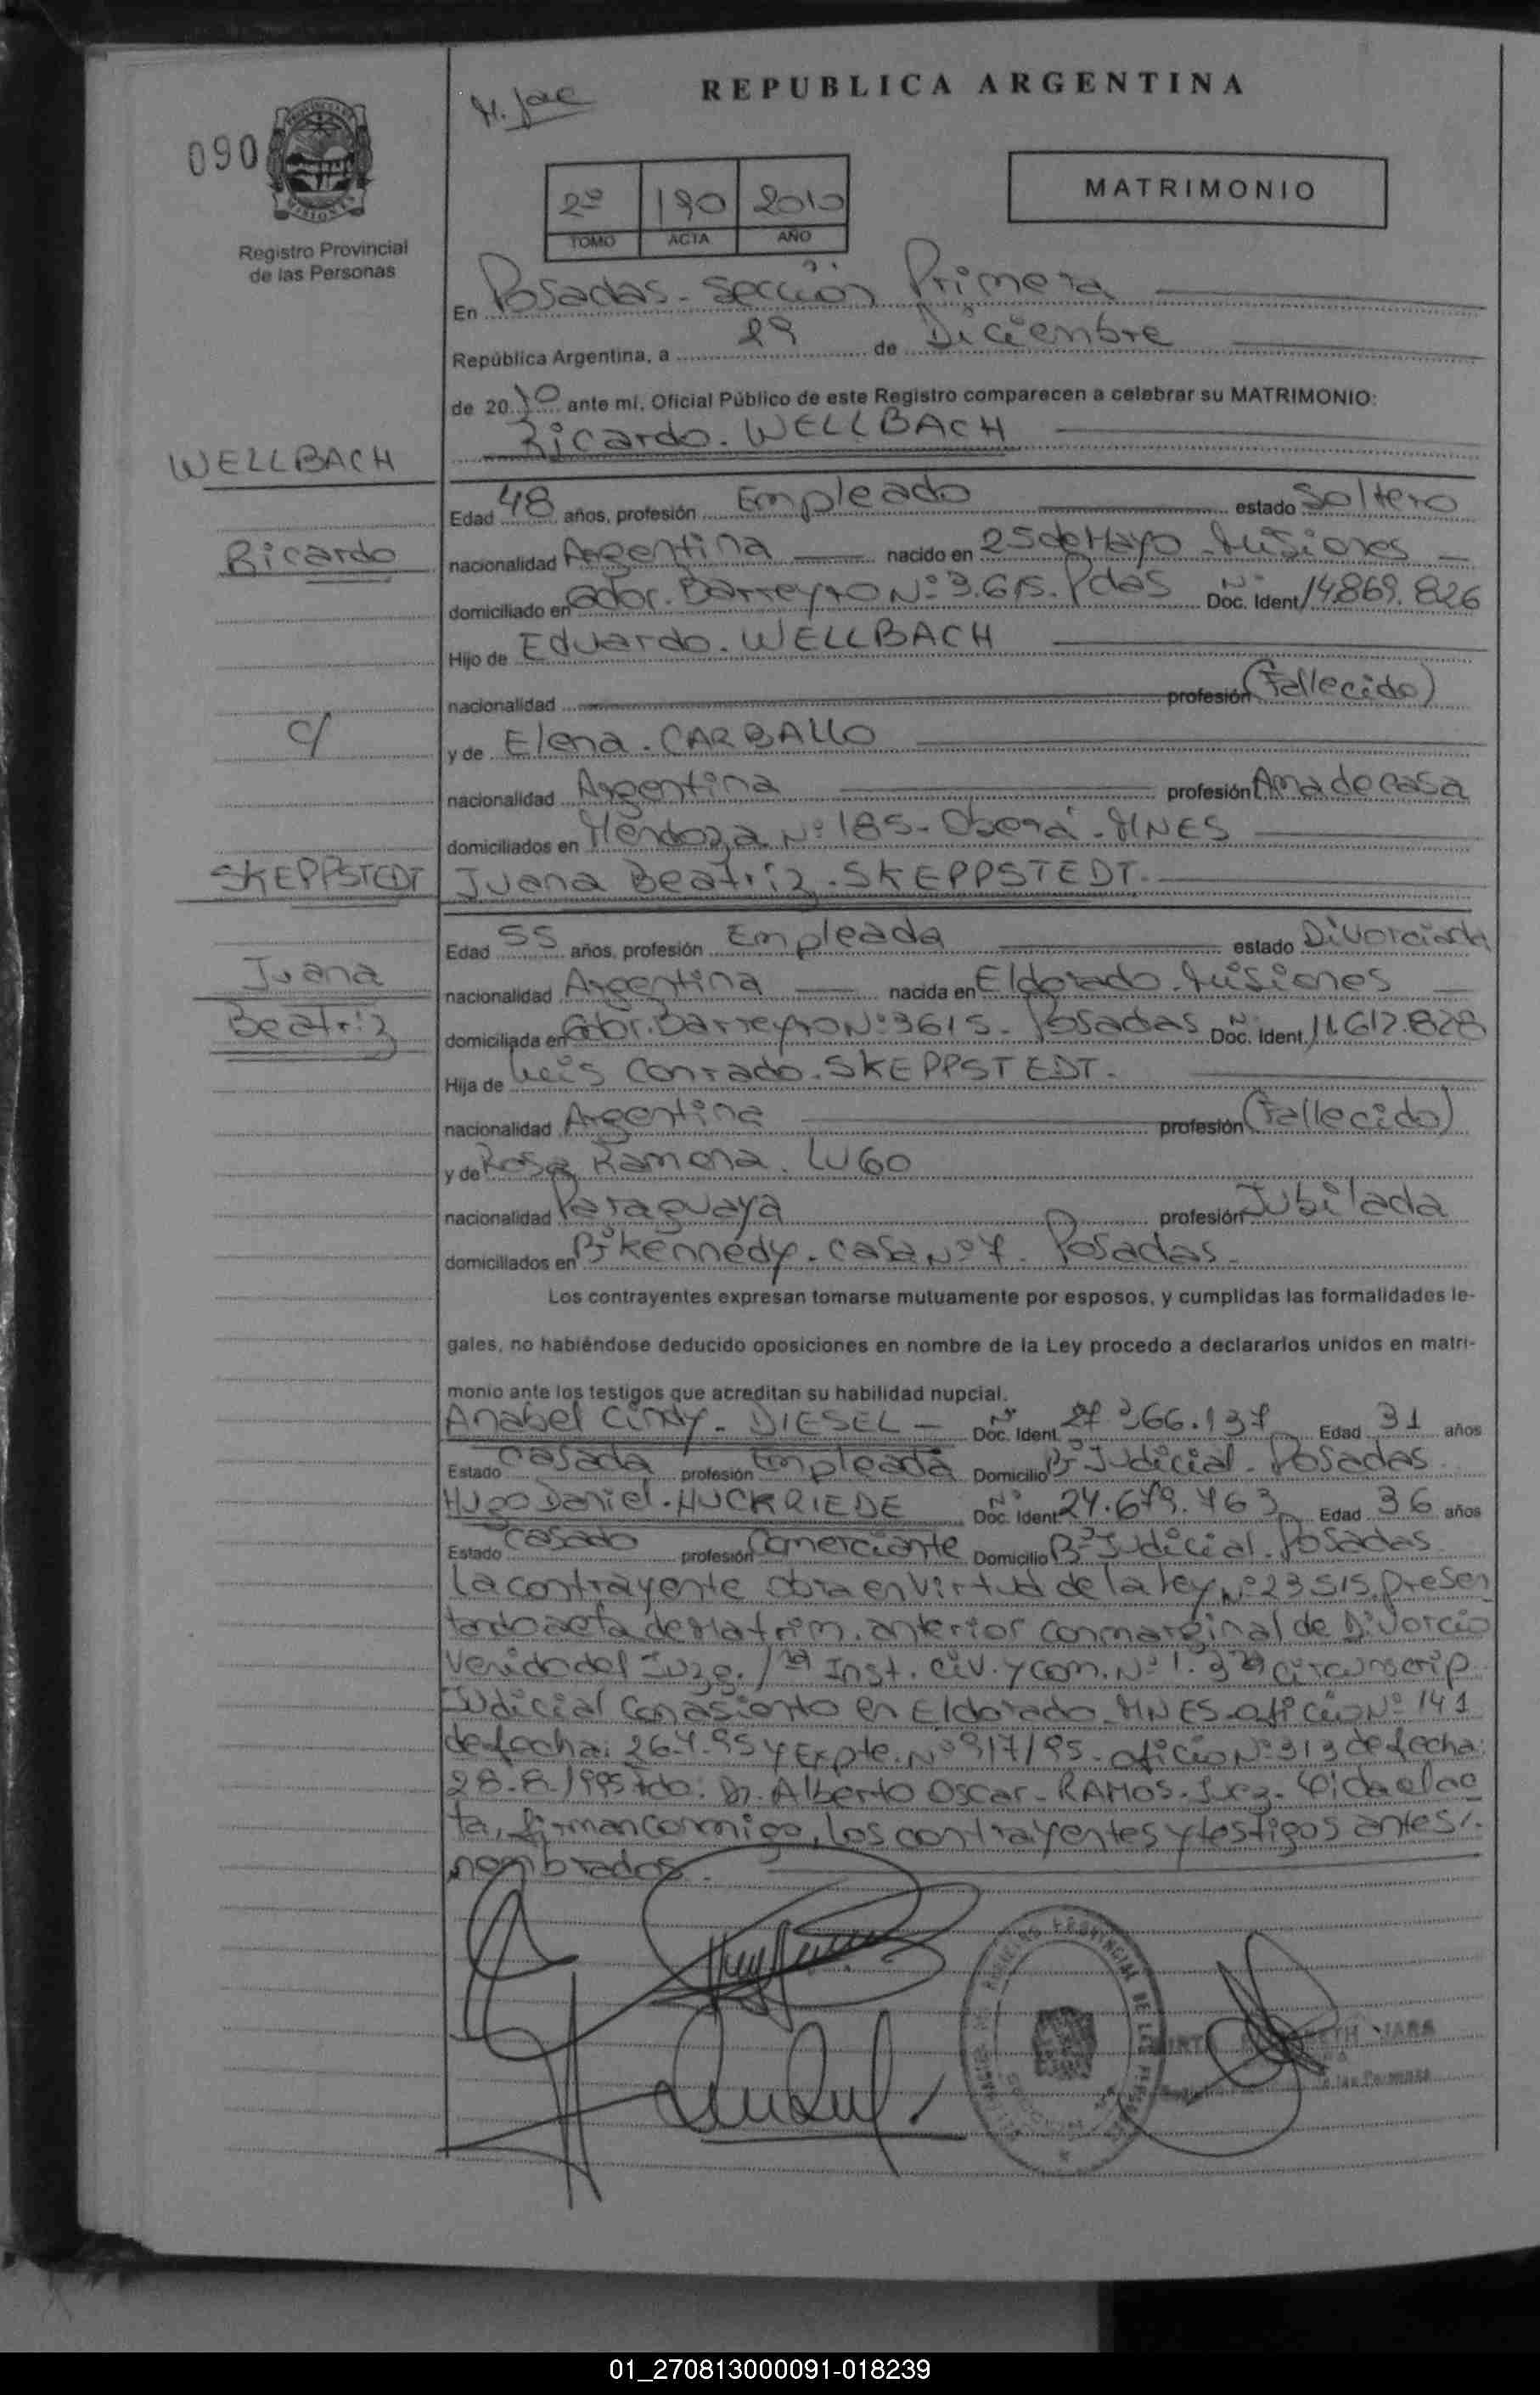 REPUBLICA ARGENTINA
090
MATRIMONIO
2º 190 2010
TOMO ACTA AÑO
Registro Provincial
de las Personas
En Posadas - Sección Primera
República Argentina, a 29 de Diciembre
de 2010 ante mí, Oficial Público de este Registro comparecen a celebrar su MATRIMONIO:
Ricardo. WELLBACH
WELLBACH
Edad 48 años, profesión Empleado estado Soltero
Ricardo
nacionalidad Argentina nacido en 25 de Mayo - Misiones
domiciliado en Gdor. Barreyro Nº 3.615. Pdas Nº Doc. Ident. 14.869.826
Hijo de Eduardo. WELLBACH
nacionalidad profesión (Fallecido)
c/
y de Elena. CARBALLO
nacionalidad Argentina profesión Ama de casa
domiciliados en Mendoza Nº 185 - Oberá - MNES
SKEPPSTEDT
Juana Beatriz. SKEPPSTEDT.
Edad 55 años, profesión Empleada estado Divorciada
Juana
nacionalidad Argentina nacida en Eldorado. Misiones
Beatriz
domiciliada en Gdor. Barreyro Nº 3615 - Posadas Nº Doc. Ident. 11.617.828
Hija de Luis Conrado. SKEPPSTEDT.
nacionalidad Argentina profesión (Fallecido)
y de Rosa Ramona. LUGO
nacionalidad Paraguaya profesión Jubilada
domiciliados en Bº Kennedy. casa Nº 7. Posadas.
Los contrayentes expresan tomarse mutuamente por esposos, y cumplidas las formalidades le-
gales, no habiéndose deducido oposiciones en nombre de la Ley procedo a declararlos unidos en matri-
monio ante los testigos que acreditan su habilidad nupcial.
Anabel Cindy - DIESEL - Nº Doc. Ident. 27.366.137 Edad 31 años
Estado Casada profesión Empleada Domicilio Bº Judicial - Posadas
Hugo Daniel. HUCKRIEDE Nº Doc. Ident. 24.679.763 Edad 36 años
Estado Casado profesión Comerciante Domicilio Bº Judicial. Posadas
La contrayente obra en virtud de la ley Nº 23515, presen
tando acta de Matrim. anterior con marginal de Divorcio
venido del Juzg. 1ra Inst. Civ. y Com. Nº 1. 3ra Circunscrip.
Judicial con asiento en Eldorado - MNES - oficio Nº 141
de fecha: 26.4.95 y Expte. Nº 917/95 - oficio Nº 313 de fecha:
28.8.1995 Fdo: Dr. Alberto Oscar - RAMOS. Juez. Leida el ac
ta, firman conmigo, los contrayentes y testigos antes/.
nombrados.
01_270813000091-018239